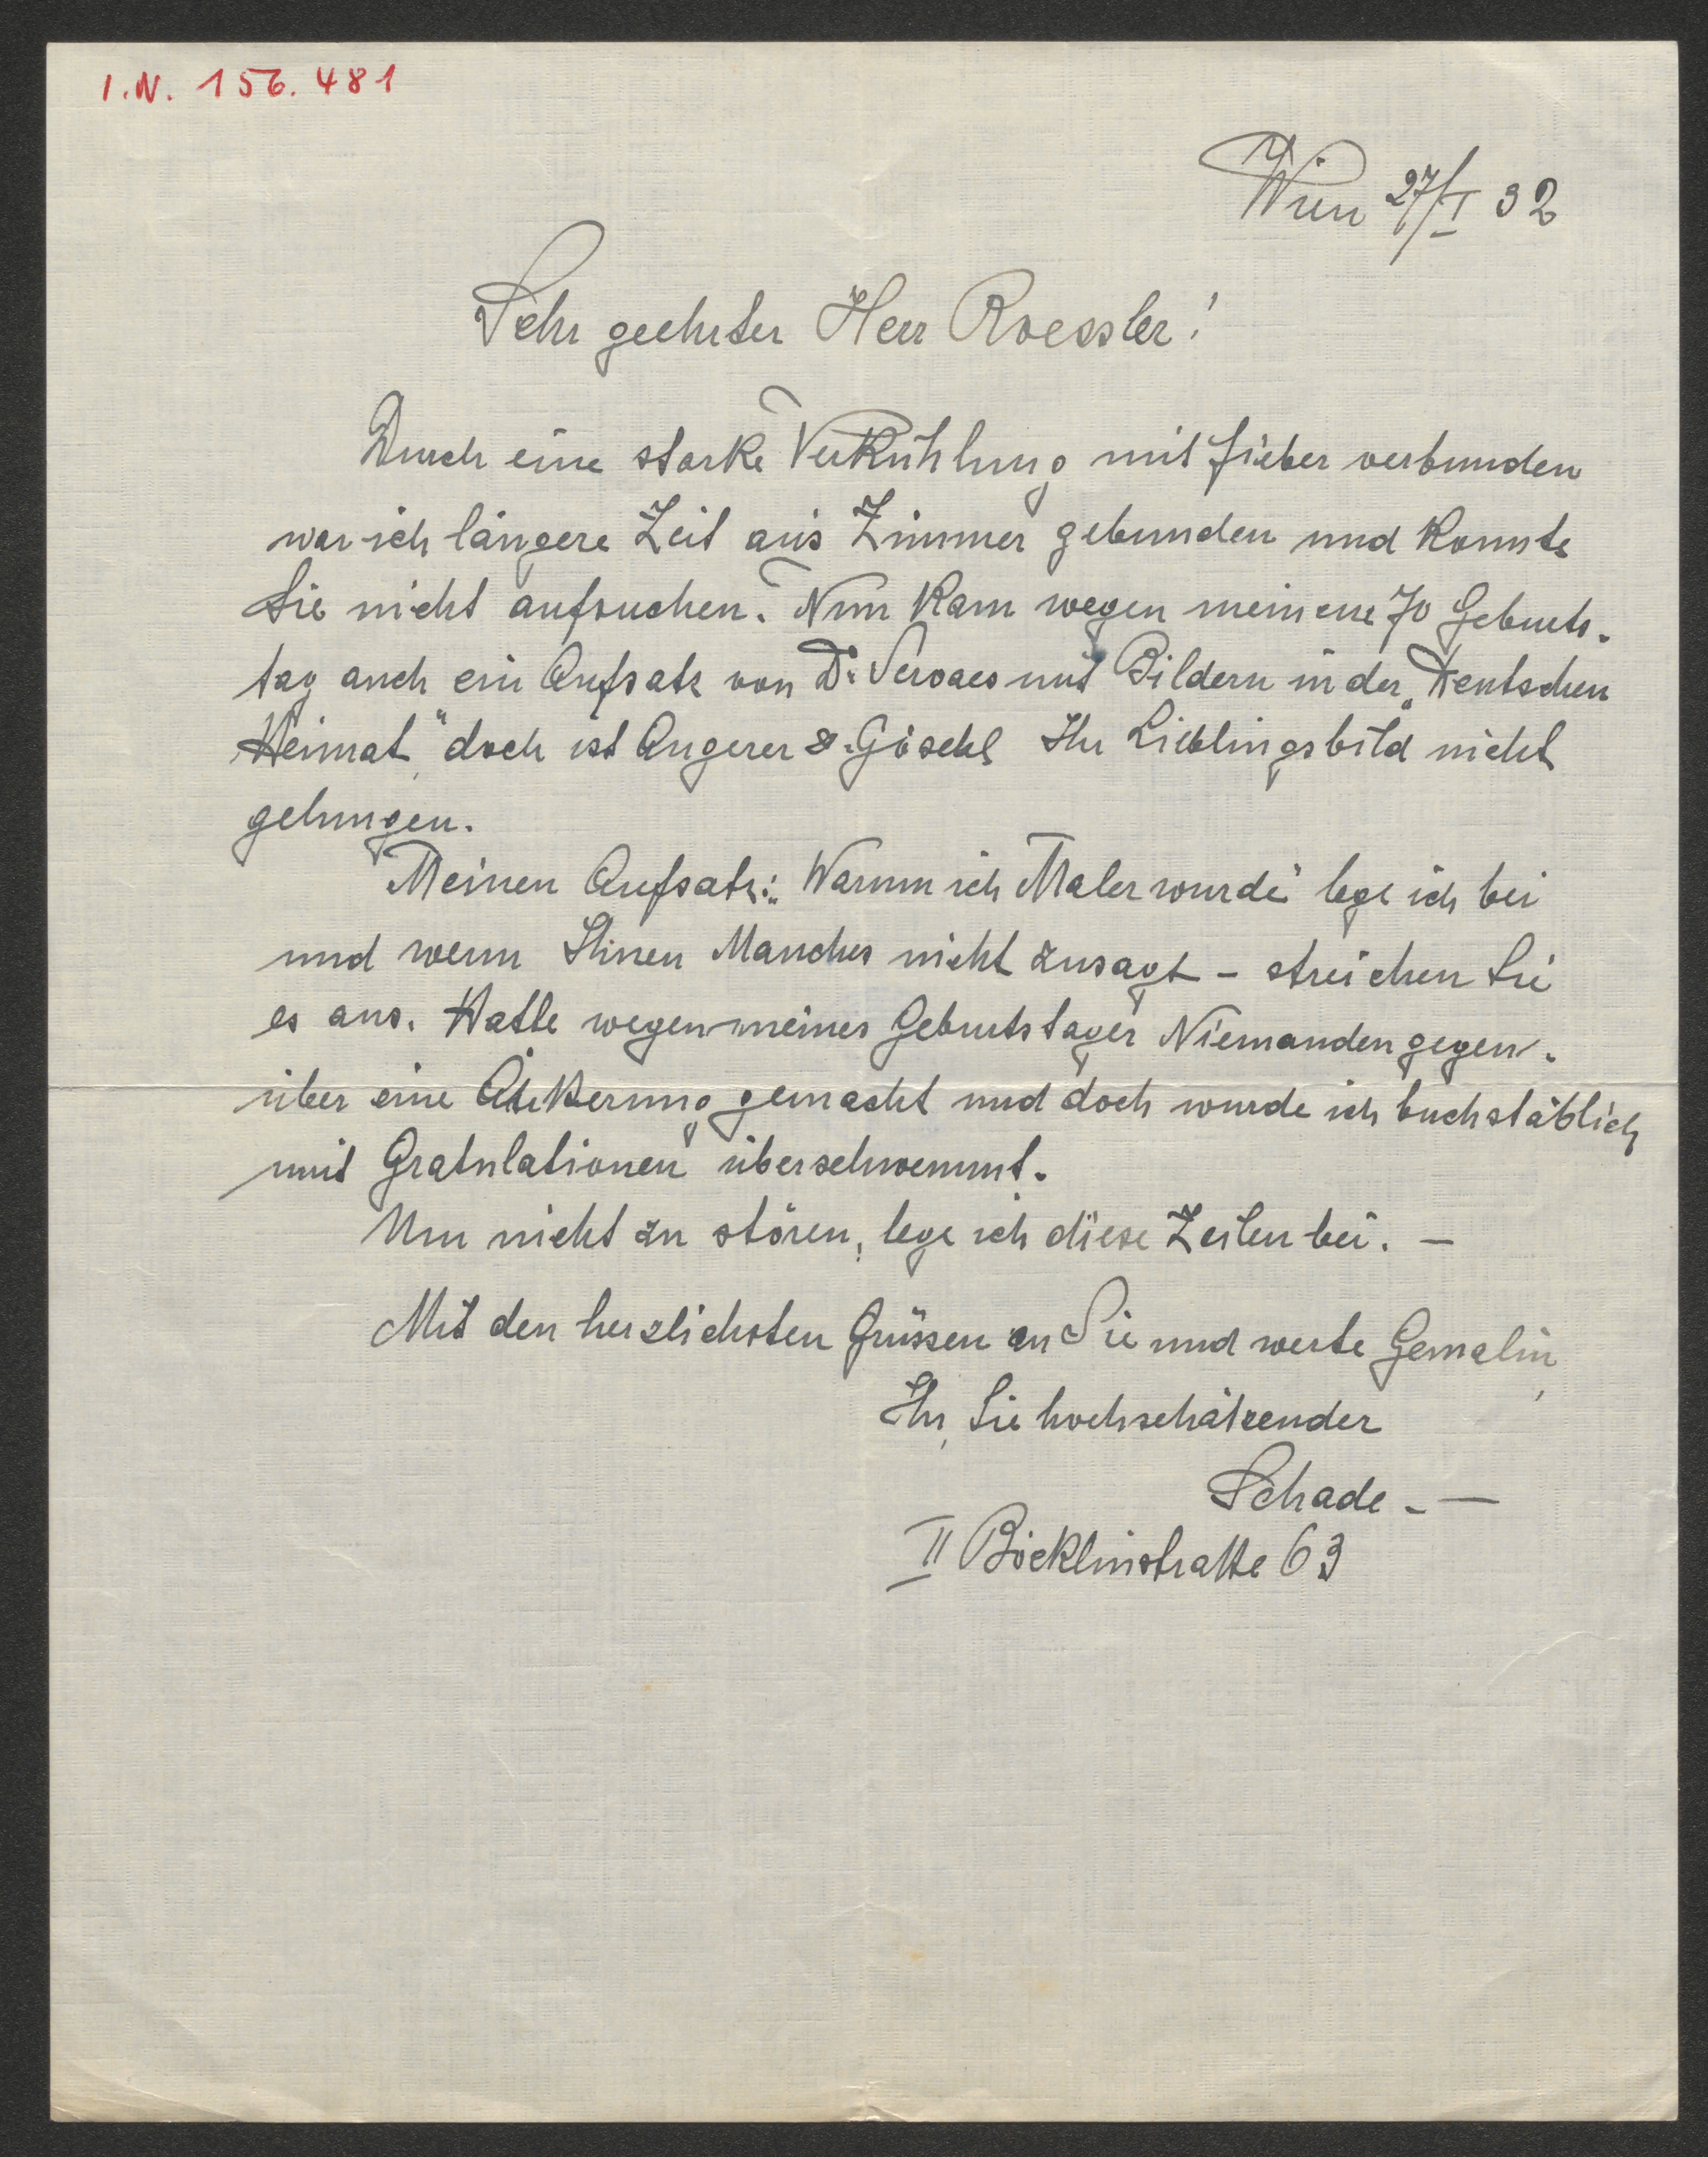 I.N. 156.481
Wien 27/I 32
Sehr geehrter Herr Roessler!
Durch eine starke Verkühlung mit Fieber verbunden
war ich längere Zeit ans Zimmer gebunden und konnte
Sie nicht aufsuchen. Nun kam wegen meinem 70 Geburts-
tag auch ein Aufsatz von Dr. Servaes mit Bildern in der „Deutschen
Heimat" doch ist Angerer & Göschl Ihr Lieblingsbild nicht
gelungen.
Meinen Aufsatz: „Warum ich Maler wurde" lege ich bei
und wenn Ihnen Manches nicht zusagt - streichen Sie
es aus. Hatte wegen meines Geburtstages Niemanden gegen-
über eine Äußerung gemacht und doch wurde ich buchstäblich
mit Gratulationen überschwemmt.
Um nicht zu stören, lege ich diese Zeilen bei. —
Mit den herzlichsten Grüssen an Sie und werte Gemalin,
Ihr, Sie hochschätzender
Schade - —
II Böcklinstraße 63